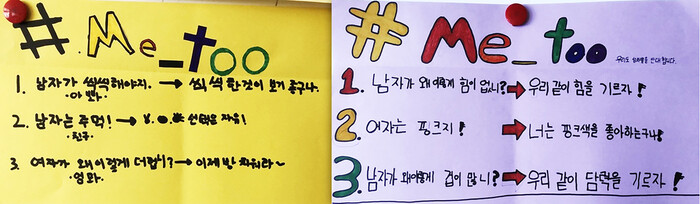 #.Me_too
1. 남자가 씩씩해야지. → 씩씩한것이 보기 좋구나.
·아빠·
2. 남자는 주먹! → 선택은 자유!
·친구·
3. 여자가 왜이렇게 더럽니? → 이제 방 치워라~
·엄마·
#Me_too
1. 남자가 왜이렇게 힘이 없니? → 우리 같이 힘을 기르자!
2. 여자는 핑크지! → 너는 핑크색을 좋아하는구나!
3. 남자가 왜이렇게 겁이 많니? → 우리 같이 담력을 기르자!